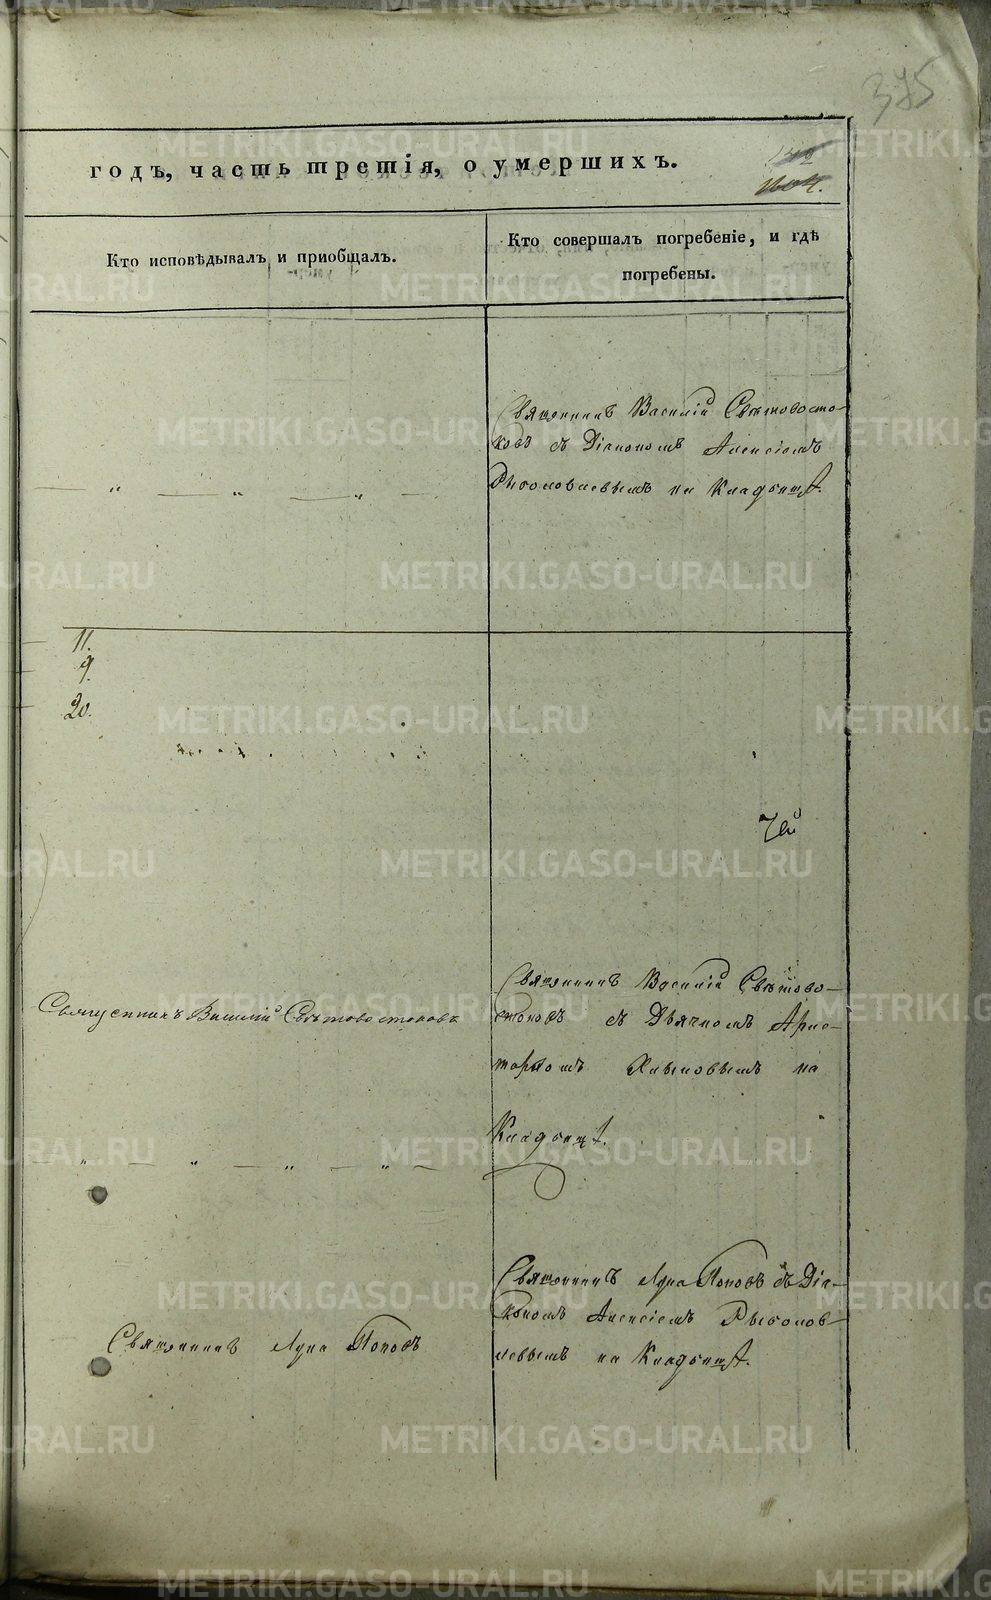 375
годъ, часть третія, о умершихъ.
Кто исповѣдывалъ и приобщалъ.
Кто совершалъ погребеніе, и гдѣ
погребены.
Священникъ Василій Свѣтовосто-
ковъ съ Діакономъ Алексіемъ
Рыболовлевымъ на Кладбищѣ.
— " — " — " —
11.
9.
20.
Священникъ Василій Свѣтовостоковъ
Священникъ Василій Свѣтово-
стоковъ съ Дьячкомъ Арис-
тархомъ Хлыновымъ на
Кладбищѣ.
" — " — " — " —
Священникъ Лука Поповъ
Священникъ Лука Поповъ съ Діа-
кономъ Алексіемъ Рыболов-
левымъ на Кладбищѣ.
METRIKI.GASO-URAL.RU